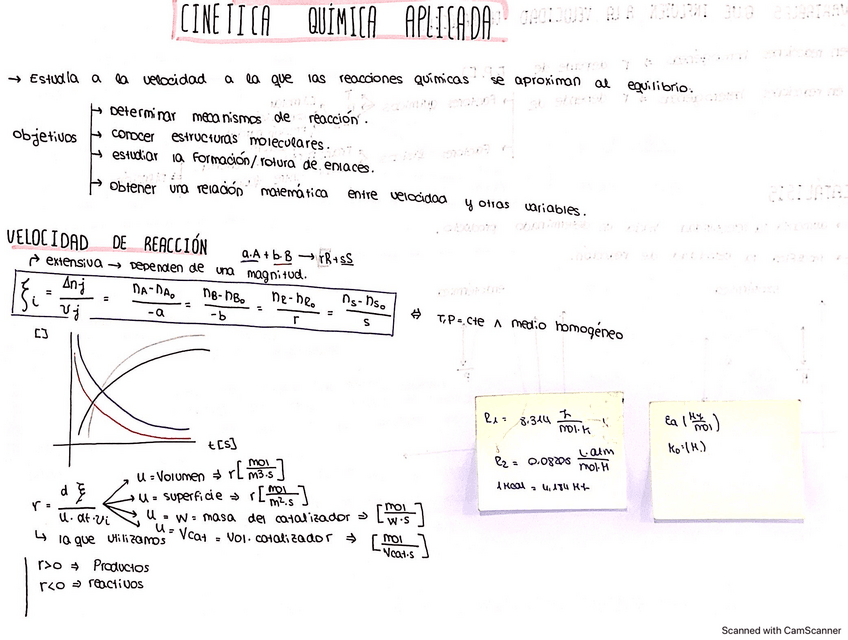 CINETICA QUÍMICA APLICADA
→ Estudia a la velocidad a la que las reacciones químicas se aproximan al equilibrio.
objetivos
→ Determinar mecanismos de reacción.
→ conocer estructuras moleculares.
→ estudiar la Formación/rotura de enlaces.
→ obtener una relación matemática entre velocidad y otras variables.
VELOCIDAD DE REACCIÓN
a.A + b.B → rR+sS
extensiva → Dependen de una magnitud.
ξi = Δnj / νj = nA-nA₀ / -a = nB-nB₀ / -b = nR-nR₀ / r = nS-nS₀ / s ⇔ T,P=cte ∧ medio homogéneo
[]
t[s]
r = dξ / u.dt.νi
u = Volumen ⇒ r[mol / m³.s]
u = superficie ⇒ r[mol / m².s]
u = W = masa del catalizador ⇒ [mol / W.s]
u = Vcat = Vol. catalizador ⇒ [mol / Vcat.s]
↳ la que utilizamos
r>0 ⇒ Productos
r<0 ⇒ reactivos
R₁ = 8.314 J / mol.K
R₂ = 0.08205 L.atm / mol.K
Scanned with CamScanner